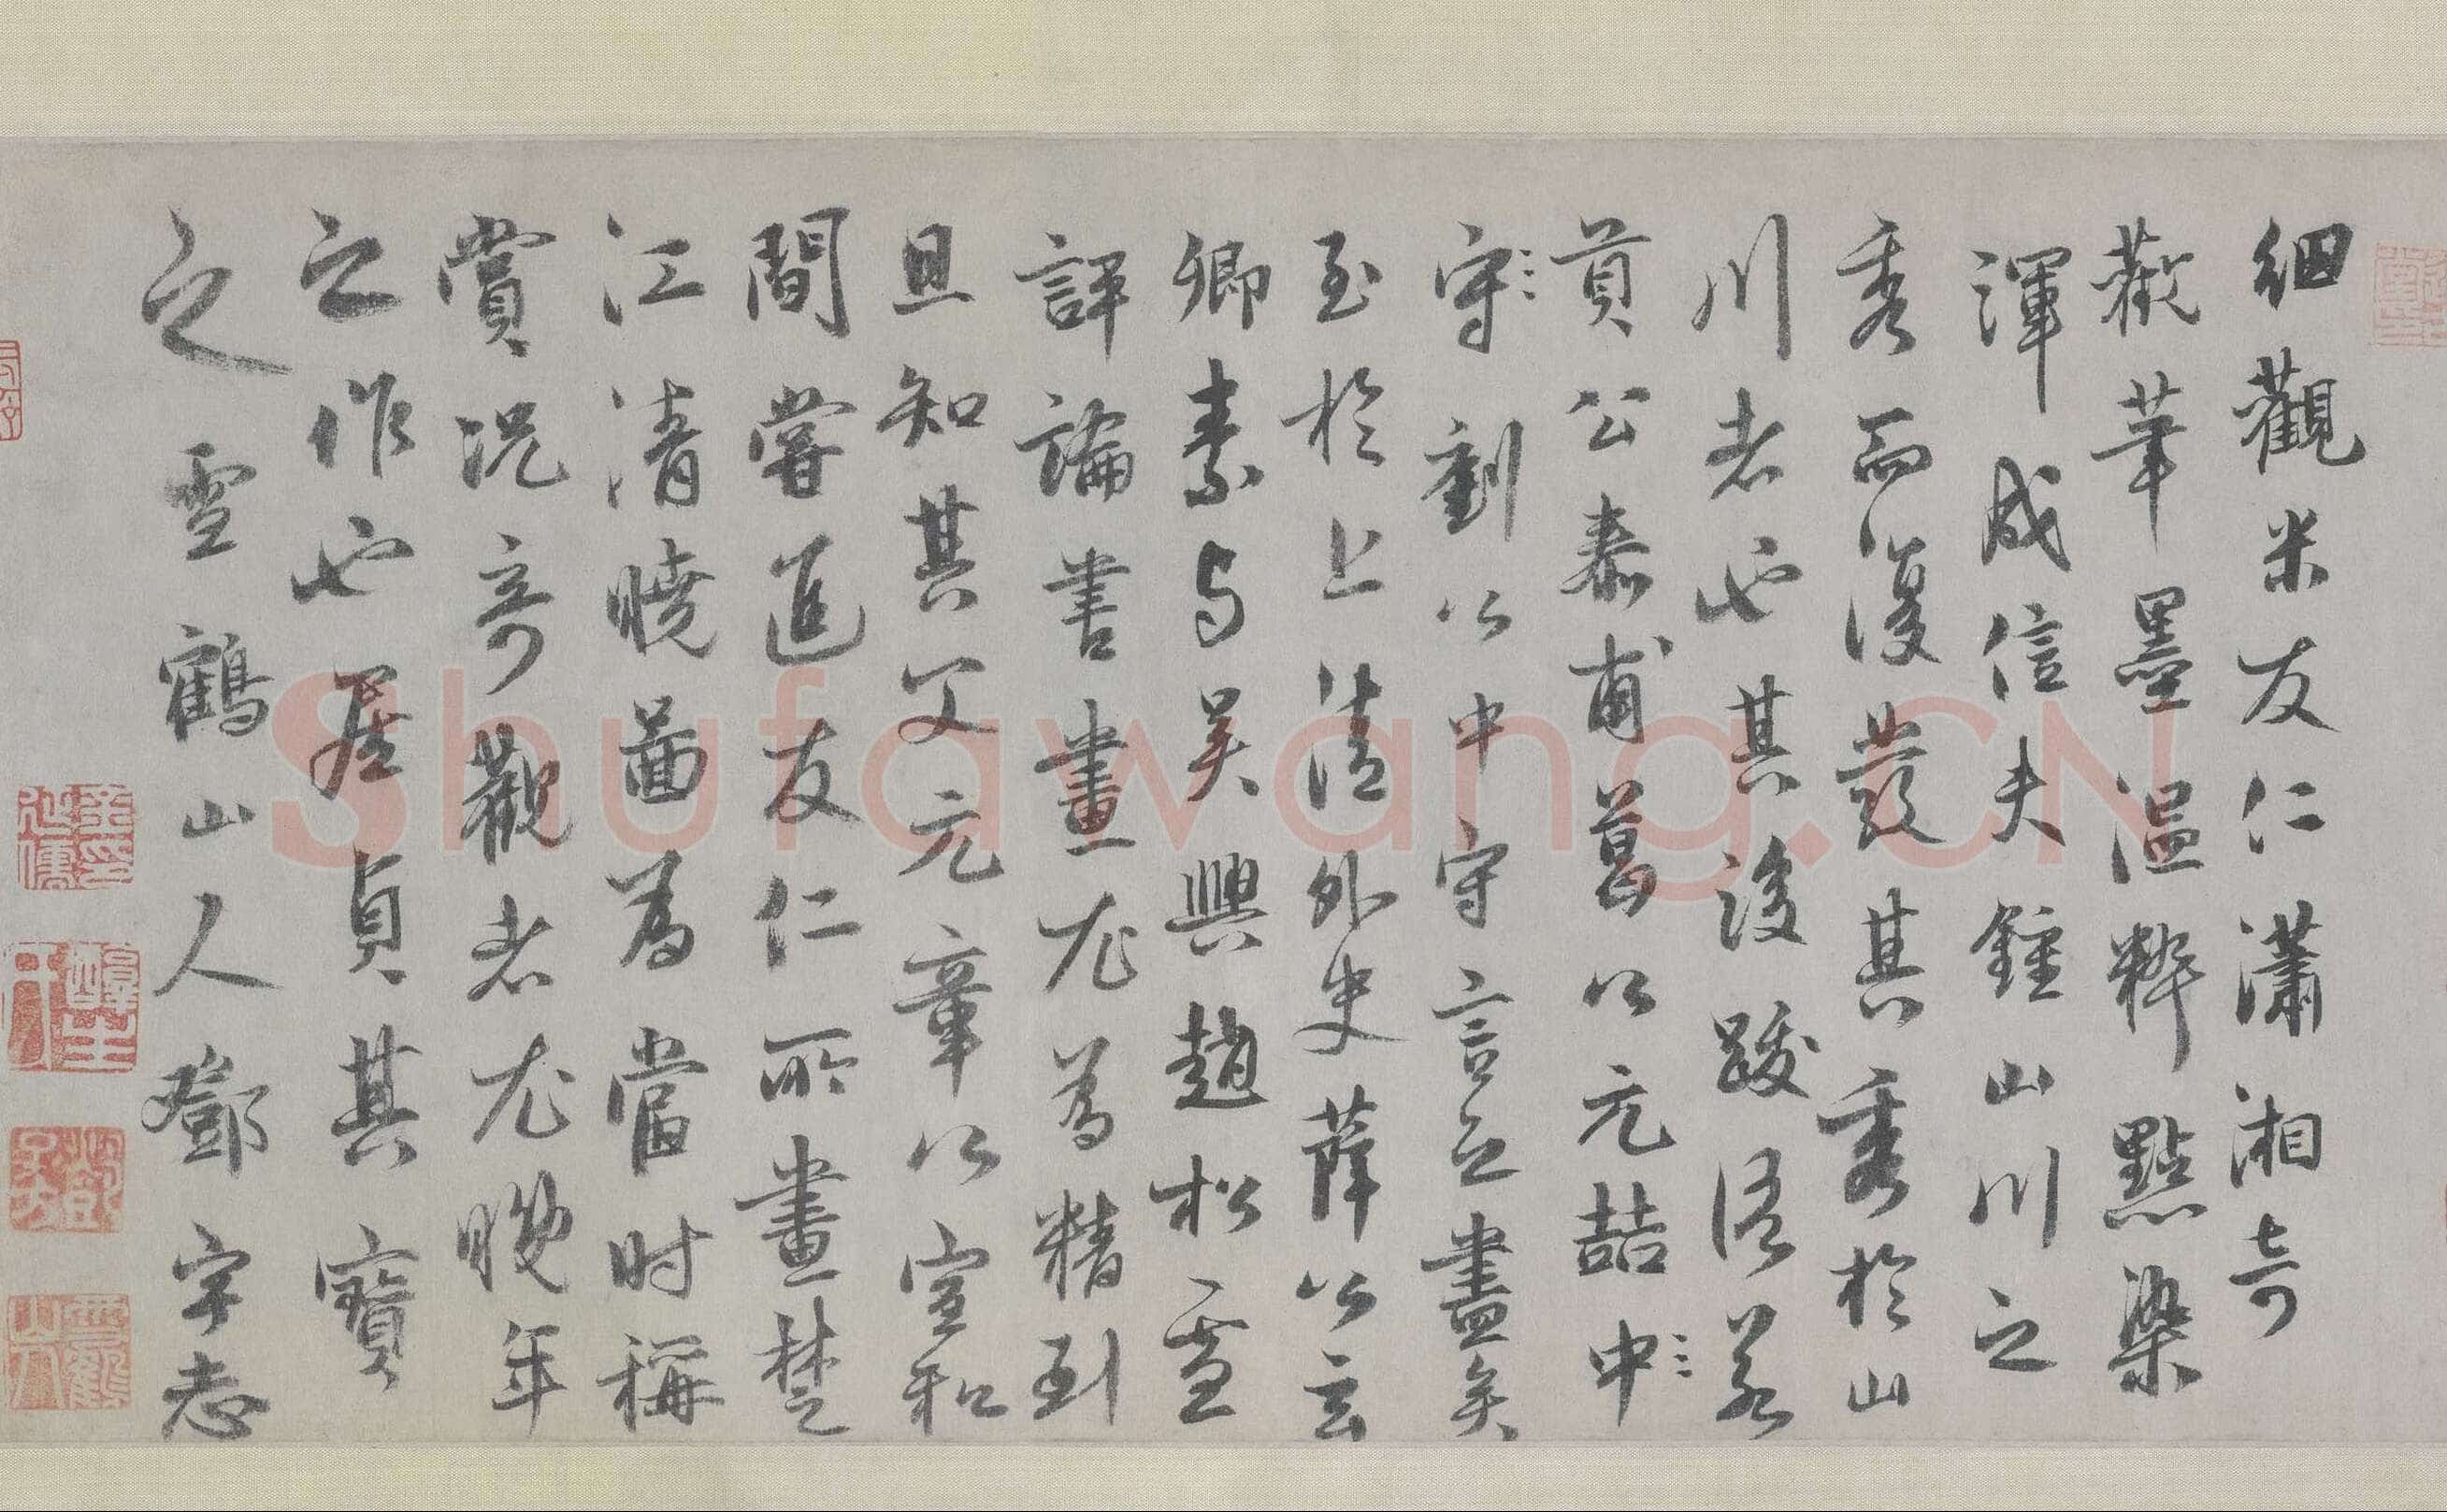 細觀米友仁瀟湘奇
觀筆墨溫粹點染
渾成信夫鍾山川之
秀而復發其秀於山
川者也其後跋語若
貢公泰甫葛公元喆中
守劉公中守言之盡矣
至於上清外史薛公玄
卿素與吳興趙松雪
評論書畫尤為精到
且知其父元章以宣和
間嘗進友仁所畫楚
江清曉圖為當時稱
賞況奇觀者尤晚年
之作也居貞其寶
之雲鶴山人鄧宇志
Shufawang.CN